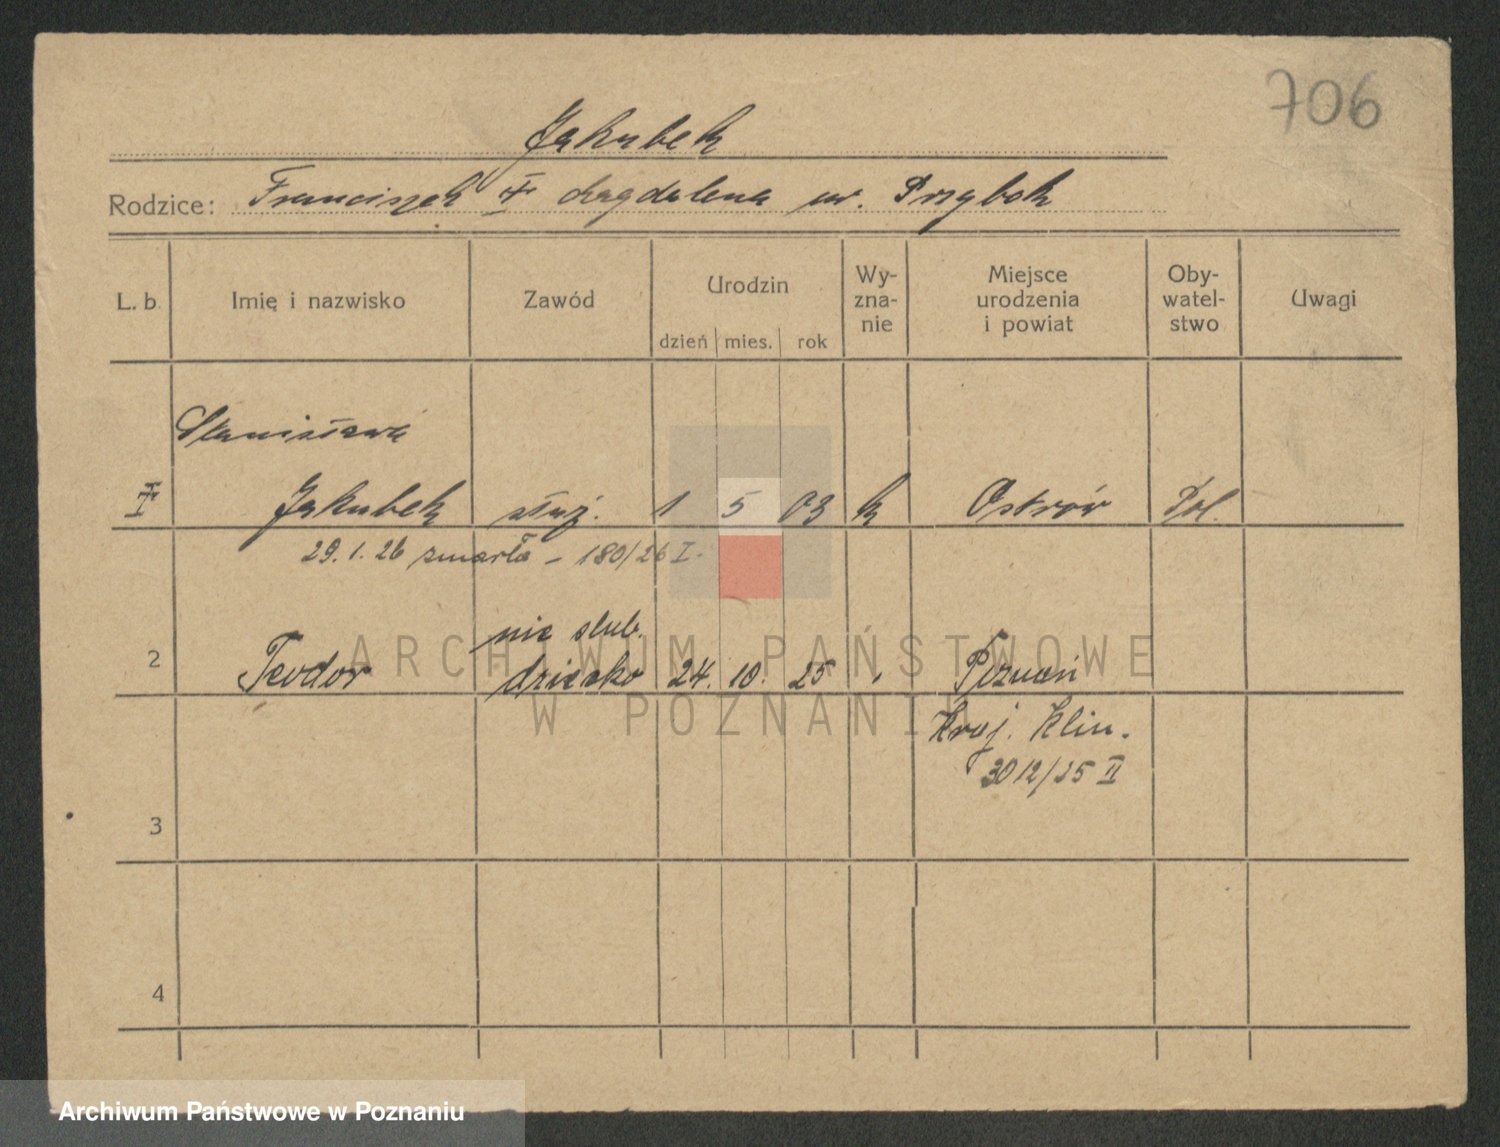 706
Jakubek
Rodzice: Franciszek Magdalena ur. Przybok
L. b. Imię i nazwisko Zawód Urodzin dzień mies. rok Wy-zna-nie Miejsce urodzenia i powiat Oby-watel-stwo Uwagi
Stanisława
1 Jakubek służ. 1 5 03 k Ostrów Pol.
29. 1. 26 zmarła – 180/26 I.
nie ślub.
2 Teodor dziecko 24. 10. 25 Poznań
Kraj. Klin.
3012/25 II
3
4
ARCHIWUM PAŃSTWOWE
W POZNANIU
Archiwum Państwowe w Poznaniu